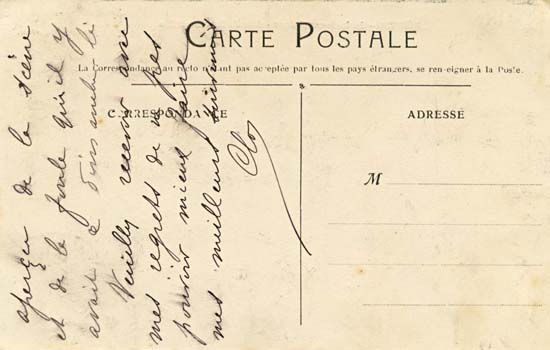 CARTE POSTALE
La Correspondance au recto n'étant pas acceptée par tous les pays étrangers, se renseigner à la Poste.
CORRESPONDANCE
ADRESSE
M
aperçu de la scène
et de la foule qu'il y
avait à
Veuillez recevoir avec
mes regrets de ne pas
pouvoir mieux faire
mes meilleurs
Clo